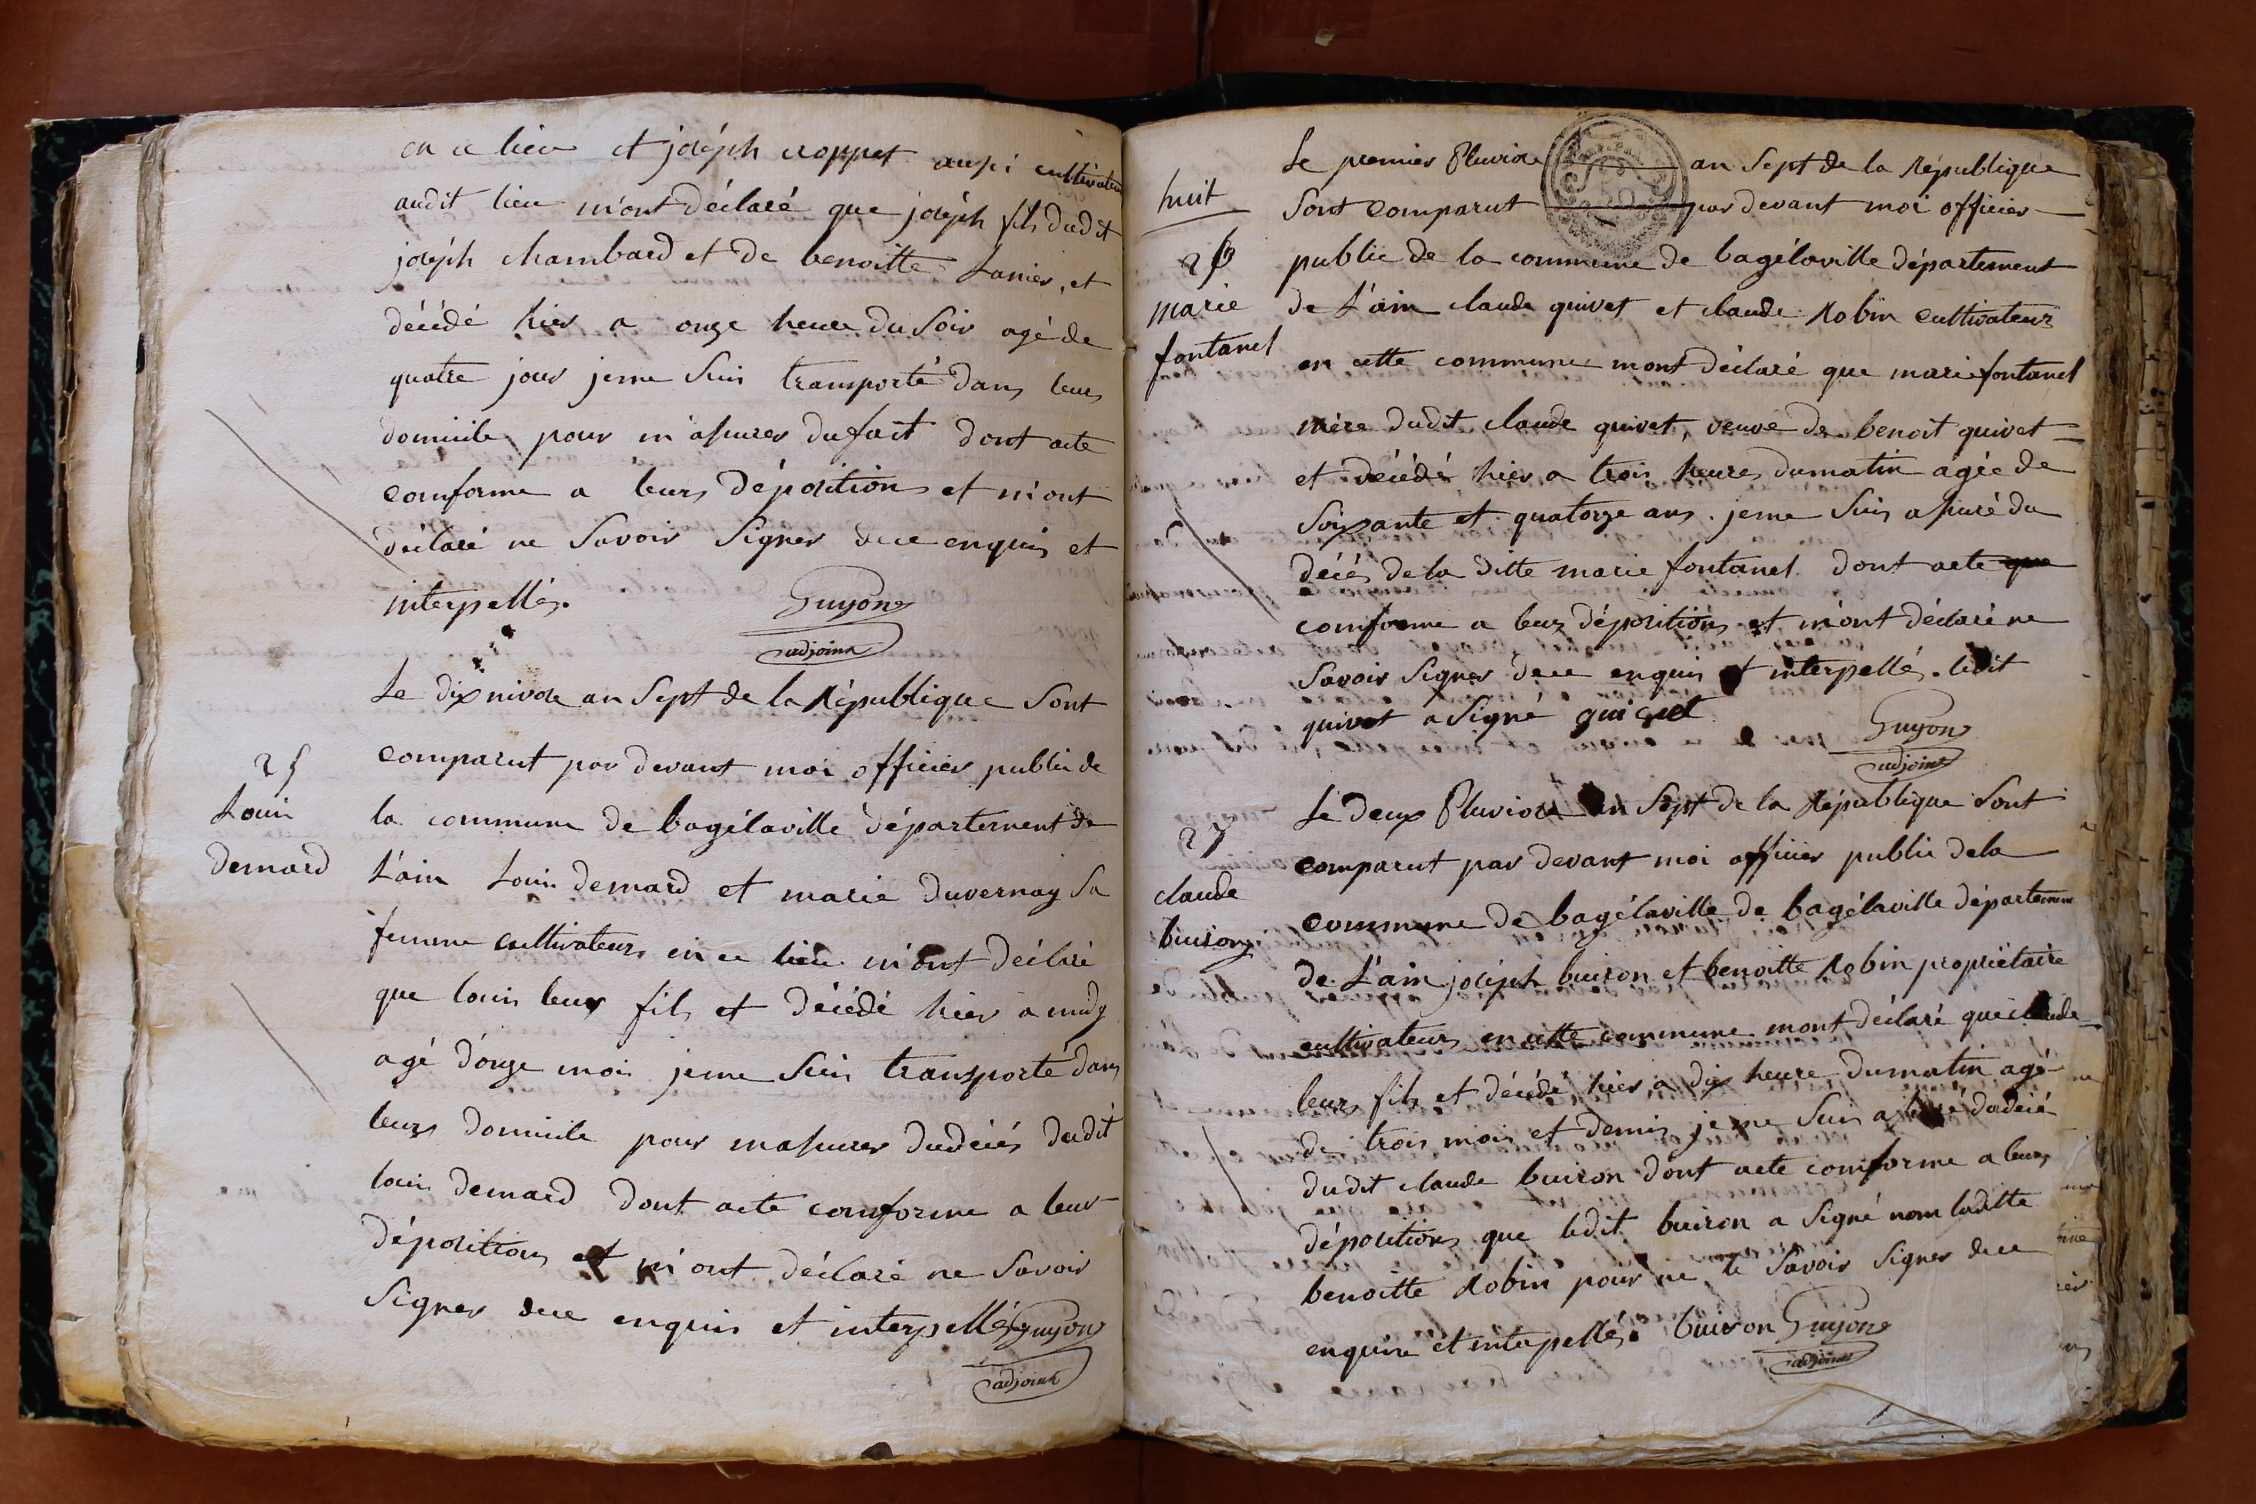 en ce lieu et joséph croppet aussi cultivateur
audit lieu m'ont déclaré que joséph fils dudit
joséph chambard et de benoitte Lanier, et
décédé hier a onze heure du Soir agé de
quatre jour jeme Suis transporté dans leurs
domicile pour m'assurer dufait dont acte
comforme a leurs déposition et m'ont
déclaré ne Savoir Signer dece enquis et
interpellés.
Guyon
adjoint
25
Louis
demard
Le dix nivose an Sept de la République Sont
comparut par devant moi officier public de
la commune de bagélaville département de
L'ain Louis demard et marie duvernay Sa
femme cultivateurs en ce lieu m'ont déclaré
que louis leur fils et décédé hier a midy
agé d'onze mois jeme Suis transporté dans
leurs domicile pour massurer dudécés dudit
louis demard dont acte comforme a leur
déposition et m'ont déclaré ne Savoir
Signer dece enquis et interpellés Guyon
adjoint
huit
26
marie
fontanel
Le premier Pluviose an Sept de la République
Sont comparut par devant moi officier
public de la commune de bagélaville département
de L'ain claude quivet et claude Robin cultivateur
en cette commune mont déclaré que marie fontanel
mére dudit claude quivet, veuve de benoit quivet
et décédé hier a trois heures dumatin agée de
Soixante et quatorze ans. jeme Suis assuré du
décés de la ditte marie fontanel dont acte que
comforme a leurs dépositions et m'ont déclaré ne
Savoir Signer dece enquis et interpellé. ledit
quivet a Signé quivet
Guyon
adjoint
27
claude
buiron
Le deux Pluviose an Sept de la République Sont
comparut par devant moi officier public dela
commune de bagélaville de bagélaville département
de L'ain joséph buiron et benoitte Robin propriétaire
cultivateurs en cette commune mont déclaré que claude
leurs fils et décédé hier a dix heure dumatin agé
de trois mois et demis jeme Suis assuré dudécé
dudit claude buiron dont acte comforme a leurs
dépositions que ledit buiron a Signé nom laditte
benoitte Robin pour ne le Savoir Signer dece
enquire et interpellés. buiron Guyon
adjoint